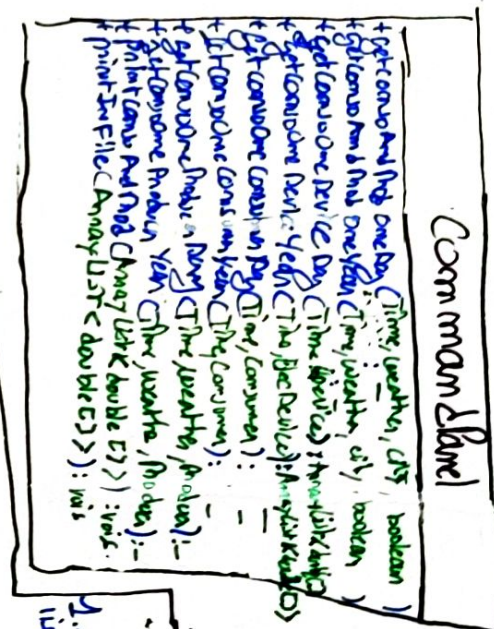 CommandPanel
+ getConsoAndProd OneDay (Time, weather, city, boolean)
+ getConsoAndProd OneYear (Time, weather, city, boolean)
+ getConsoOneDevice Day (Time, Device): ArrayList<double[]>
+ getConsoOne Device Year (Time, Elec Device): ArrayList<double[]>
+ getConsoOne Consumer Day (Time, Consumer): —
+ getConsoOne Consumer Year (Time, Consumer): —
+ getConsoOne Producer Day (Time, weather, Producer): —
+ getConsoOme Producer Year (Time, weather, Producer): —
+ printConso And Prod (Array List<double[]>): void
+ printInFile (Array List<double[]>): void